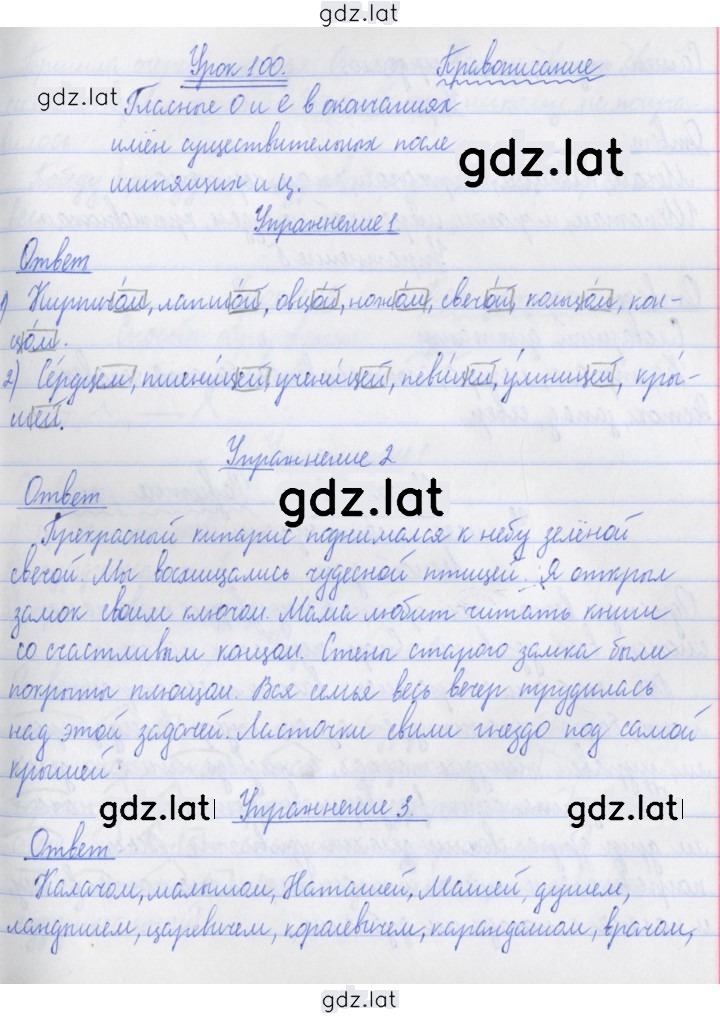 gdz.lat
Урок 100. Правописание
gdz.lat
Гласные О и е в окончаниях
имён существительных после
gdz.lat
шипящих и ц.
Упражнение 1
Ответ
1) Кирпичо́м, лапшо́й, овцо́й, ножо́м, свечо́й, кольцо́м, кон-
цо́м.
2) Се́рдцем, пшени́цей, учени́цей, певи́цей, у́мницей, кры́-
шей.
Упражнение 2
Ответ
gdz.lat
Прекрасный кипарис поднимался к небу зелёной
свечой. Мы восхищались чудесной птицей. Я открыл
замок своим ключом. Мама любит читать книги
со счастливым концом. Стены старого замка были
покрыты плющом. Вся семья весь вечер трудилась
над этой задачей. Ласточки свили гнездо под самой
крышей.
gdz.lat Упражнение 3. gdz.lat
Ответ
Калачом, малышом, Наташей, Машей, душем,
ландышем, царевичем, королевичем, карандашом, врачом,
gdz.lat